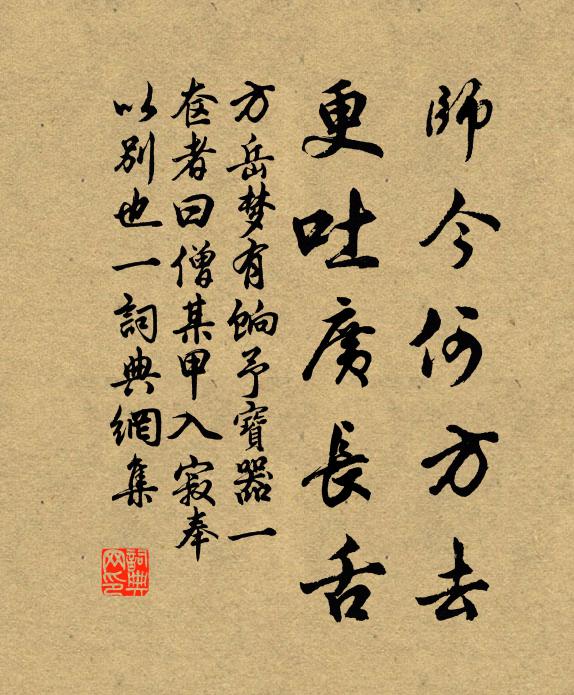 師今何方去
更吐廣長舌
方岳梦有餉予寶器一
奁者曰僧某甲入寂奉
以別也一詞典網集
詞典
网印